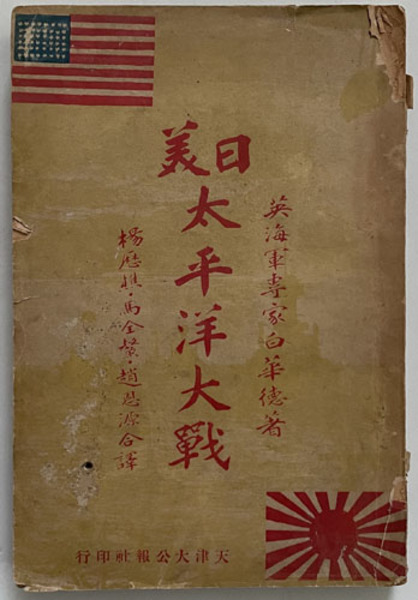 英海軍專家白華德著
日美
太平洋大戰
楊歷樵·馬全鰲·趙恩源合譯
天津大公報社印行